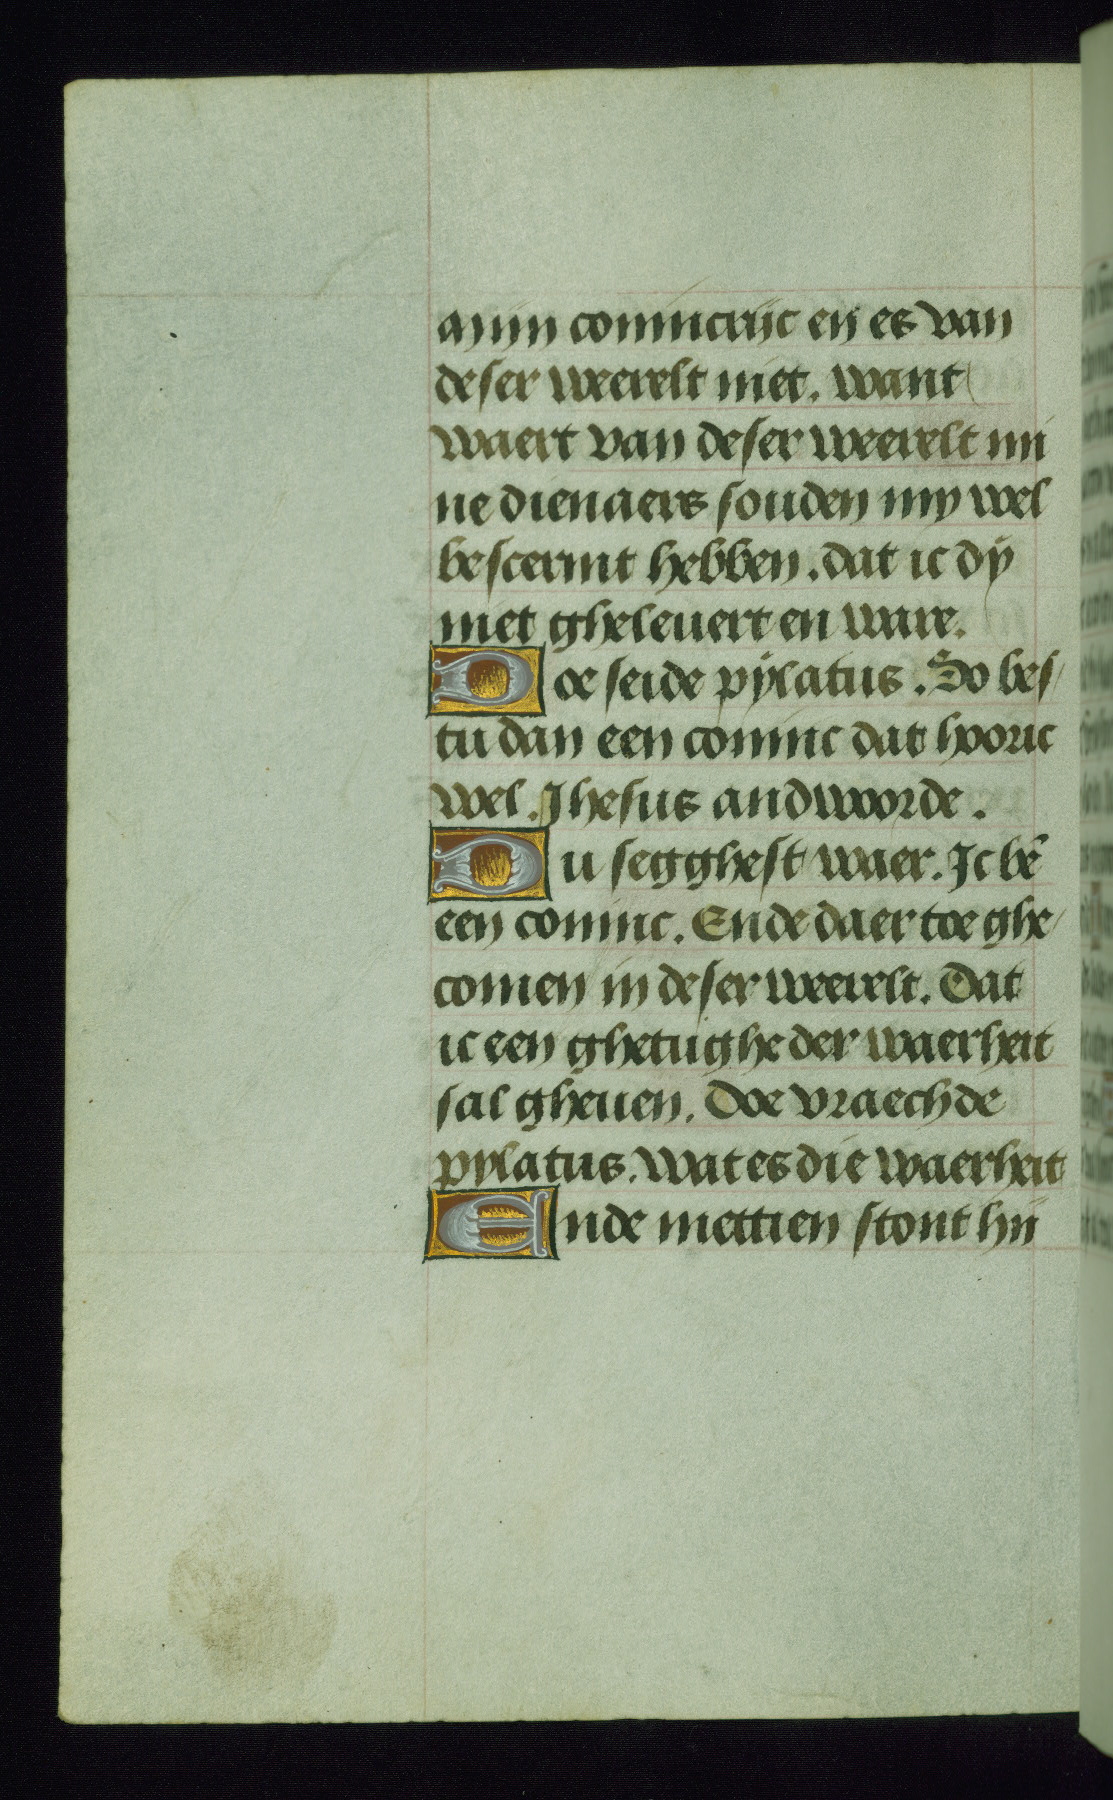 Mijn conincrijc en es van
deser weerelt niet. want
waert van deser weerelt mi
ne dienaers souden my wel
bescermt hebben. dat ic dy
niet gheleuert en ware.
Doe seide pylatus. So bes
tu dan een coninc dat hooric
wel. Jhesus andwoorde.
Du segghest waer. Jc bē
een coninc. Ende daer toe ghe
comen in deser weerelt. Dat
ic een ghetughe der waerheit
sal gheuen. Doe vraechde
pylatus. wat es die waerheit
Ende mettien stont hij